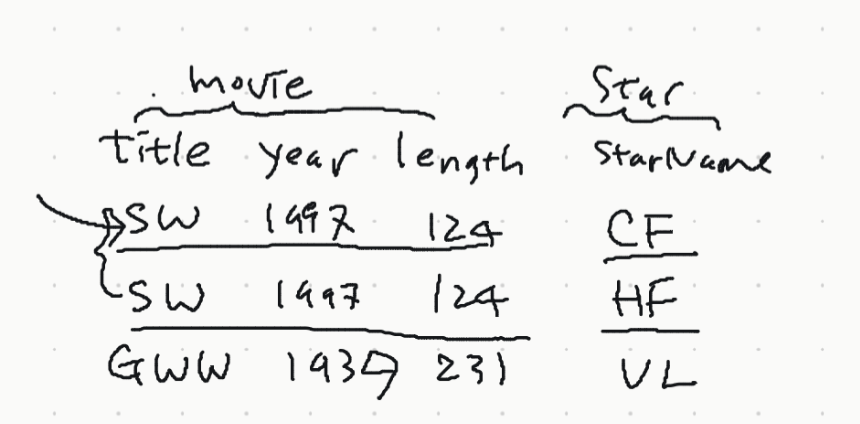 movie Star
title year length StarName
SW 1997 124 CF
SW 1997 124 HF
GWW 1939 231 VL